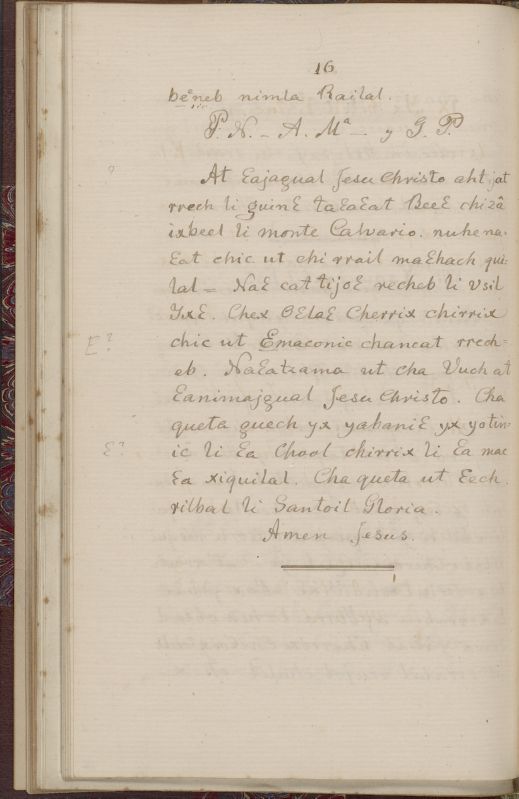 16
beneb nimla Railal.
P. N. – A. Mª – y G. P.
At Eajagual Jesu Christo aht jat
rrech li guinE taEaEat BeeE chizâ
ixbeel li monte Calvario. nuhena-
Eat chic ut chirrail maEhach qui-
lal = NaE cat tijoE recheb li Vsil
YxE. Chex OElaE Cherrix chirrix
E? chic ut Emaconic chancat rrech=
eb. NaEatzama ut cha Vuch at
Eanimajgual Jesu Christo. Cha
queta guech yx yabaniE yx yotin-
E? ic li Ea Chool chirrix li Ea mac
Ea xiquilal. Cha queta ut Eech.
rilbal li Santoil Gloria.
Amen Jesus.